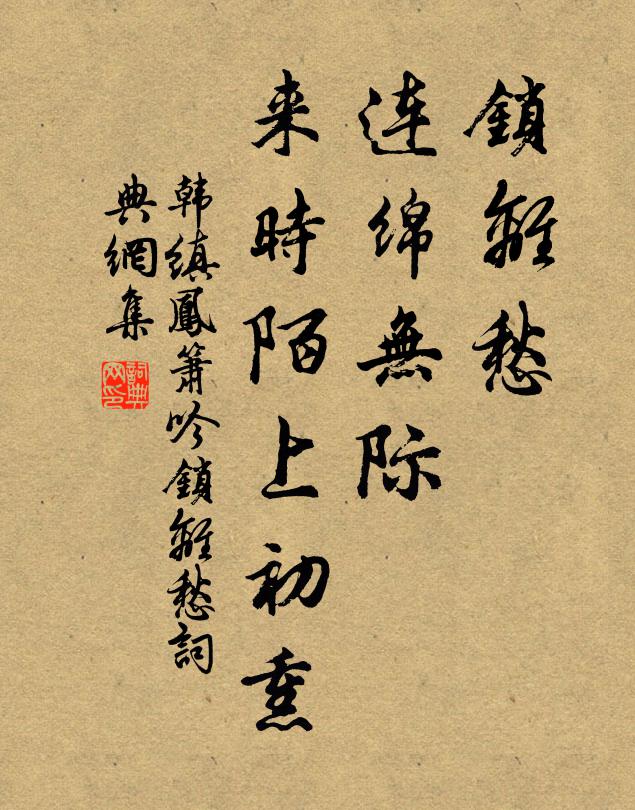 鎖離愁
连绵無际
来時陌上初熏
韩缜鳳箫吟鎖離愁詞
典網集
詞典網印